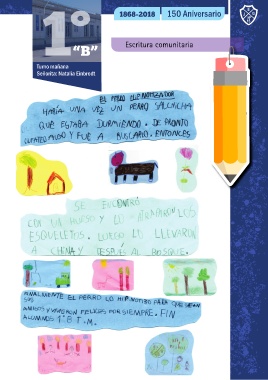 1868-2018 150 Aniversario
1° "B"
Turno mañana
Señorita: Natalia Einbrodt
Escritura comunitaria
EL PERRO QUE HIPNOTIZADOR
HABÍA UNA VEZ UN PERRO SALCHICHA
QUE ESTABA DURMIENDO. DE PRONTO
ALGO Y FUE A BUSCARLO. ENTONCES
SE ENCONTRÓ
CON UN HUESO Y LO LOS
ESQUELETOS. LUEGO LO LLEVARON
A CHINA Y DESPUÉS AL BOSQUE.
FINALMENTE EL PERRO LO HIPNOTIZÓ PARA QUE SEAN
SUS
AMIGOS Y VIVIERON FELICES POR SIEMPRE. FIN
ALUMNOS 1° B T.M.